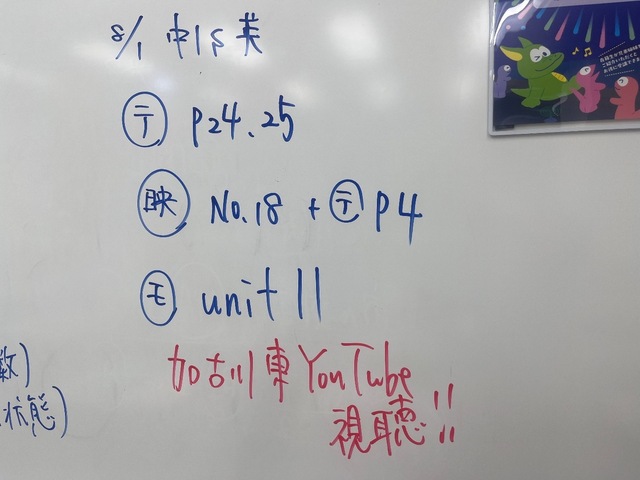 8/1 中1S英
テ P24.25
映 No.18 + テ P4
モ unit 11
加古川東YouTube
視聴!!
数)
状態)